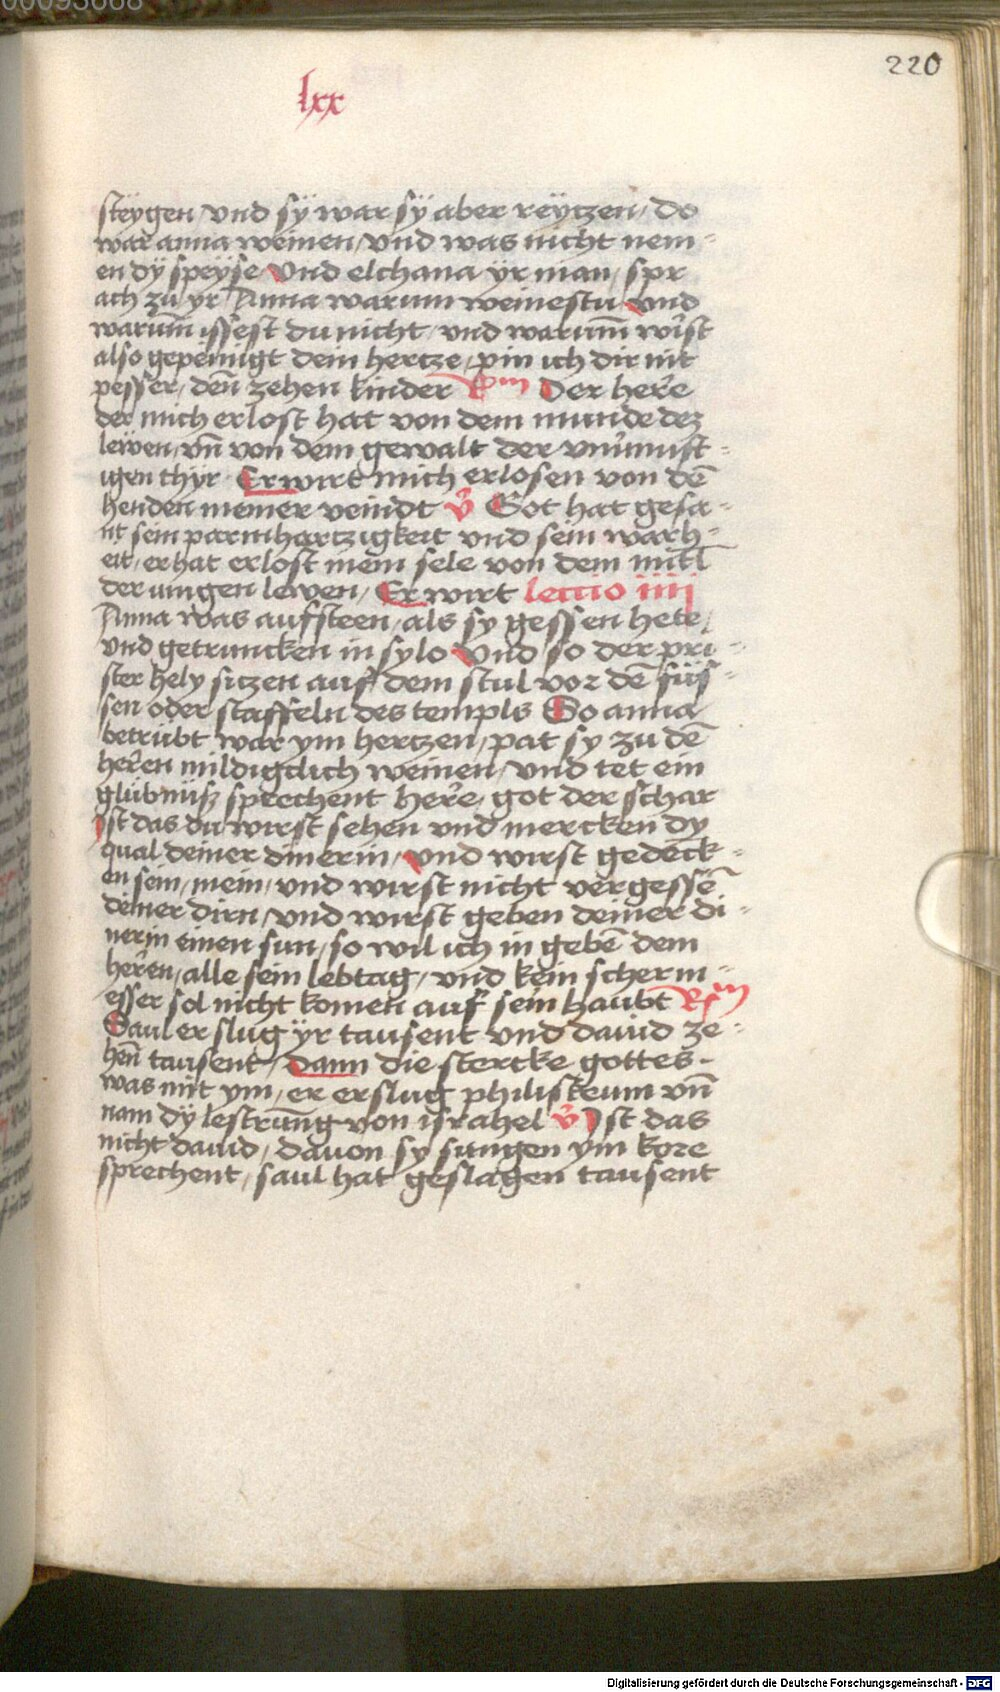 00093668
220
lxx
steygen / vnd sÿ war sÿ aber reÿtzen / do
war anna weinen / vnd was nicht nem-
en dÿ speÿse Vnd elchana ÿr man / spr
ach zu yr Anna warum weinestu Vnd
warum̄ issest du nicht / vnd warum̄ wirst
also gepeinigt dein hertze / pin ich dir nit
pesser / den̄ zehen kinder Rm Der here
der mich erlost hat von dem munde dez
lewen / vn̄ von dem gewalt der vnuernuft-
igen thÿr Er wirt mich erlosen von dē
henden meiner veindt V̊ Got hat gesa-
nt sein parmhartzigkeit vnd sein warh-
eit / er hat erlost mein sele von dem mitl
der iungen lewen / Er wirt lectio iiij
Anna was aufsteen / als sy gessen hete /
vnd getruncken in sylo Vnd so der pri-
ster hely sitzen auf dem stul vor dē füs-
sen oder staffeln des templs So anna
betrübt war ym hertzen / pat sy zu dē
heren mildigclich weinen / vnd tet ein
glübnüß sprechent here / got der schar
Ist das du wirst sehen vnd mercken dy
qual deiner dinerin / Vnd wirst gedenck-
en sein / mein / vnd wirst nicht vergessē
deiner dirn / vnd wirst geben deiner di-
nerin einen sun / so wil ich in gebē dem
heren / alle sein lebtag / vnd kein scherm-
esser sol nicht komen auf sein haubt Rm
Saul erslug ÿr tausent vnd dauid ze-
hen̄ tausent / Dann die stercke gottes -
was mit ym / er erslug philisteum vn̄
nam dÿ lestrūng von israhel V̊ Ist das
nicht dauid / dauon sy sungen ym kore
sprechent / saul hat geslagen tausent
Digitalisierung gefördert durch die Deutsche Forschungsgemeinschaft - DFG